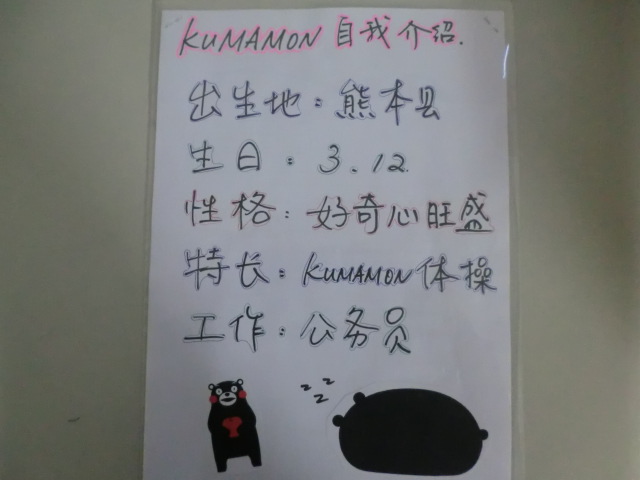 KUMAMON 自我介绍.
出生地：熊本县
生日：3.12.
性格：好奇心旺盛
特长：KUMAMON体操
工作：公务员
z z z